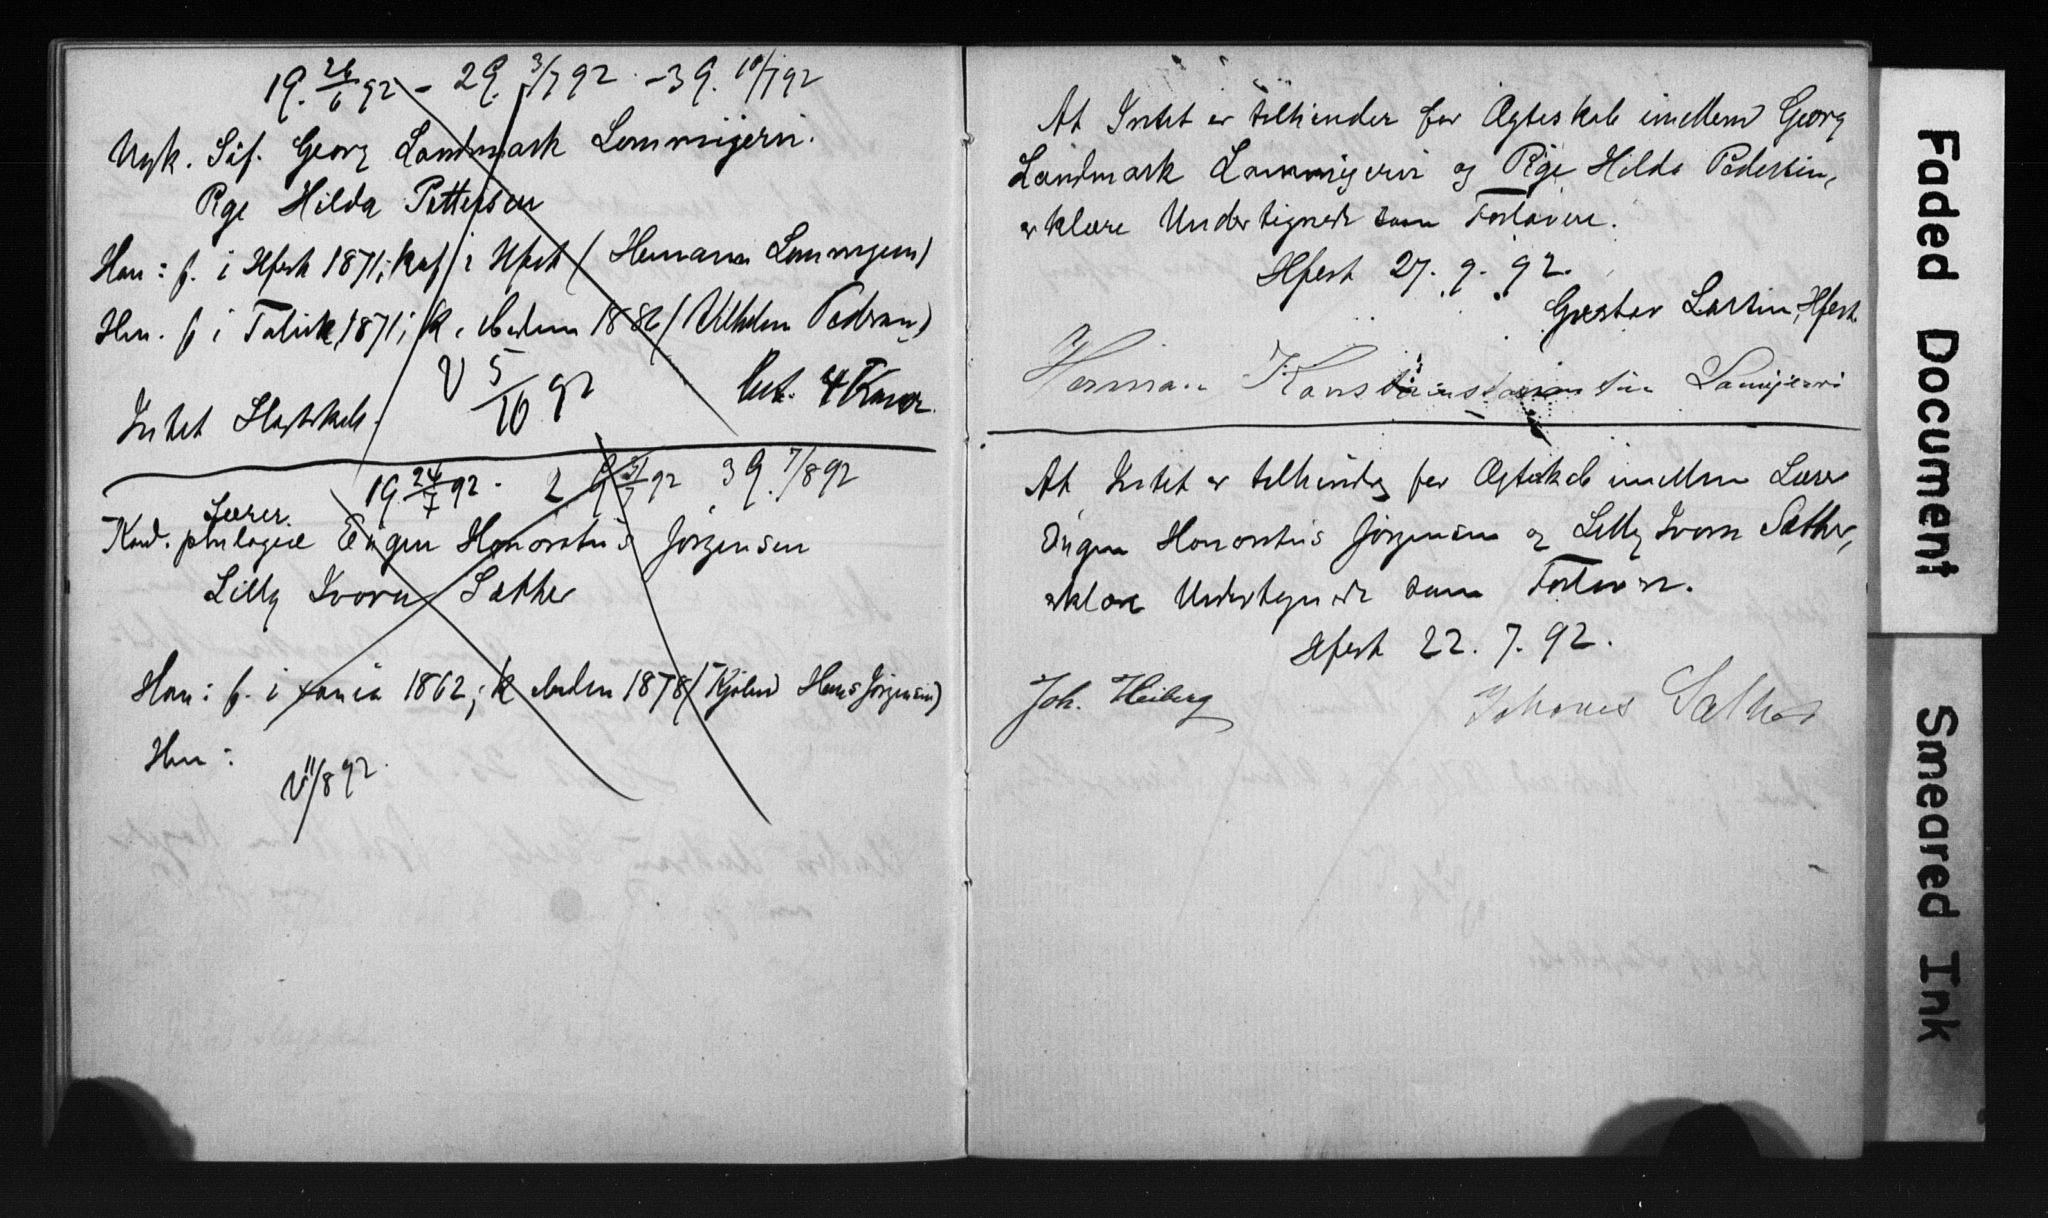 1 G. 26/6 92 - 2 G. 3/7 92 - 3 G. 10/7 92
Ugk. Georg Landmark Lommijervi.
Pge Hilda Pettersen
Han: f. i Hfest 1871; kaf i Hfest (Hemann Lommijervi)
Hun. f i Talvik 1871; k. ibidem 1886 (Vilhelm Pedersen)
Intet Slegtskab. V 5/10 92 bet. 4 Kroner.
1 G. 24/7 92. 2 G 31/7 92 3 G. 7/8 92
Lærer
Kand. philologiæ Eugen Honoratus Jörgensen
Lilly Ivora Sæther
Han: f. i Xania 1862; k ibidem 1878 ( Hans Jörgensen)
Hun:
V 11/8 92.
At Intet er tilhinder for Ægteskab imellem Georg
Landmark Lommijervi og Pige Hilda Pedersen,
erklære Undertegnede som Forlovere.
Hfest 27. 9. 92.
Gustav Larsen, Hfest
Herman Lomijervi
At Intet er tilhinder for Ægteskab imellem Lærer
Eugen Honoratus Jörgensen og Lilly Ivora Sæther,
erklære Undertegnede som Forlovere.
Hfest 22. 7. 92.
Joh. Heiberg Johannes Sæther
Faded Document
Smeared Ink